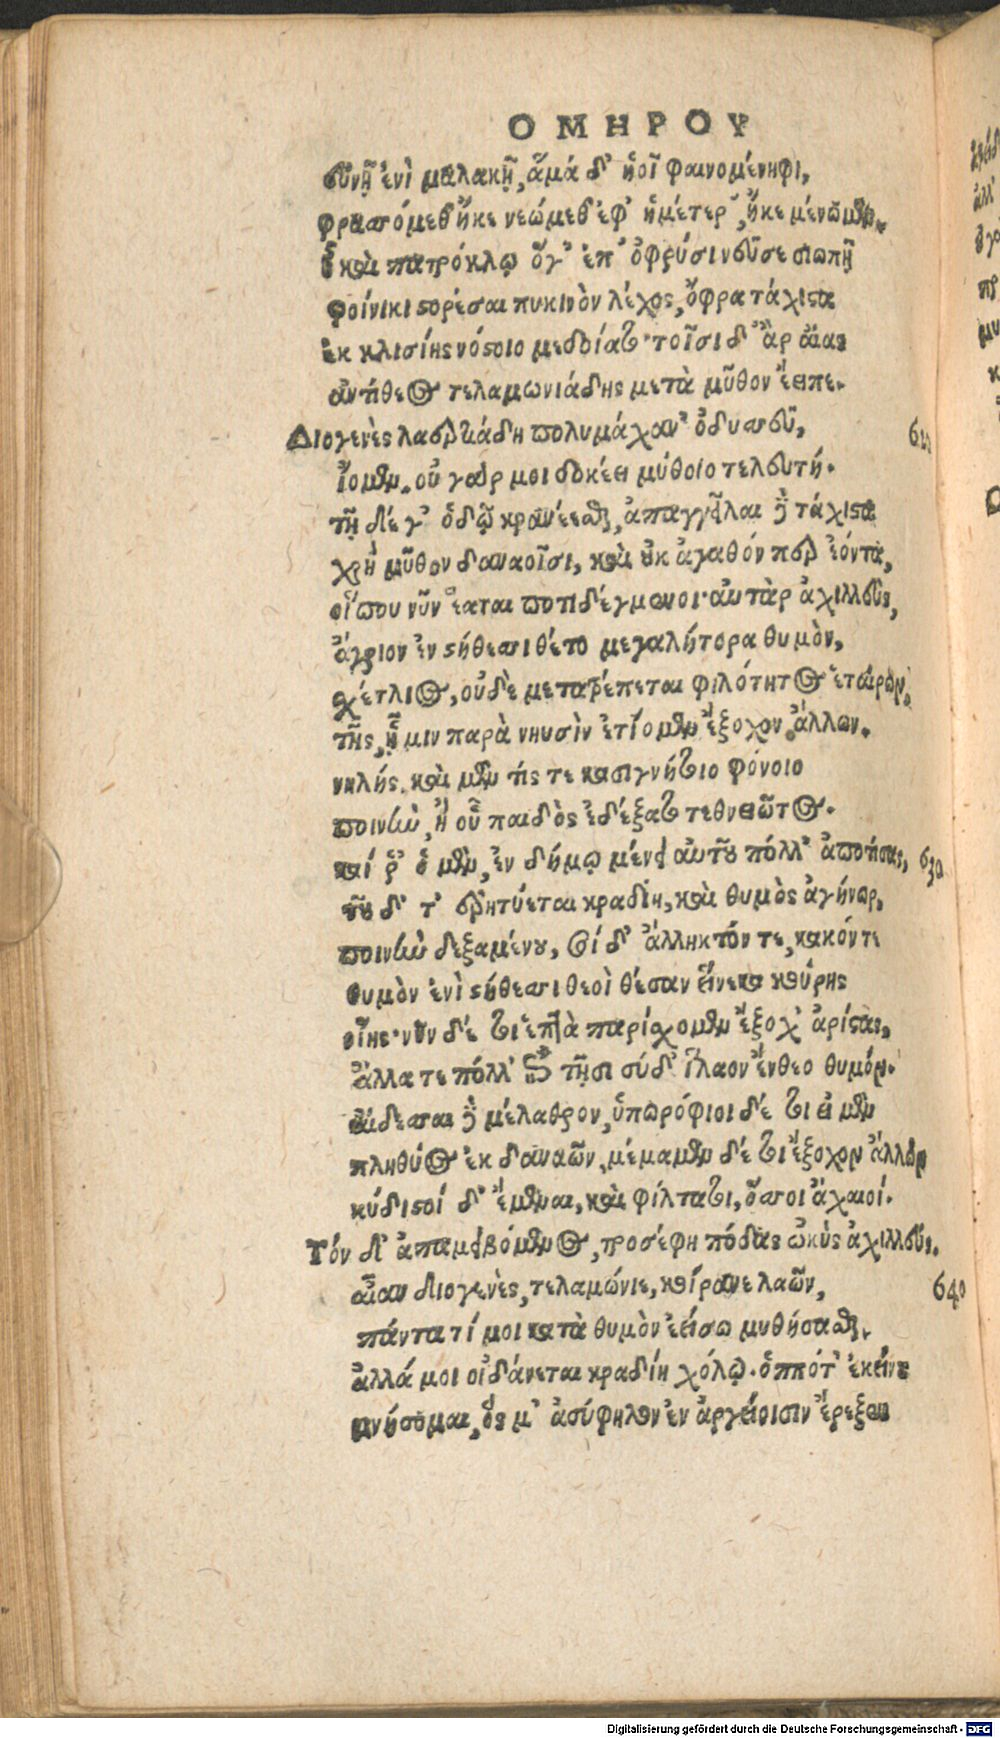 ΟΜΗΡΟΥ
εὐνῇ ἐνὶ μαλακῇ, ἅμα δ' ἠοῖ φαινομένηφι,
φρασσόμεθ' ἤκε νεώμεθ' ἐφ' ἡμέτερ', ἤκε μένωμεν.
ἦ καὶ πατρόκλῳ ὅγ' ἐπ' ὀφρύσι νεῦσε σιωπῇ
φοίνικι στορέσαι πυκινὸν λέχος, ὄφρα τάχιστα
ἐκ κλισίης νόστοιο μεδοίατο· τοῖσι δ' ἂρ αἴας
ἀντίθεος τελαμωνιάδης μετὰ μῦθον ἔειπε.
Διογενὲς λαερτιάδη πολυμάχαν' ὀδυσσεῦ,
ἴομεν. οὐ γάρ μοι δοκέει μύθοιο τελευτή.
τῇ δέ γ' ὁδῷ κρανέεσθαι, ἀπαγγεῖλαι δὲ τάχιστα
χρὴ μῦθον δαναοῖσι, καὶ οὐκ ἀγαθόν περ ἐόντα,
οἵ που νῦν ἕαται ποτιδέγμενοι· αὐτὰρ ἀχιλλεὺς,
ἄγριον ἐν στήθεσσι θέτο μεγαλήτορα θυμὸν,
σχέτλιος, οὐδὲ μετατρέπεται φιλότητος ἑταίρων,
τῆς, ᾗ μιν παρὰ νηυσὶν ἐτίομεν ἔξοχον ἄλλων.
νηλής. καὶ μέν τίς τε κασιγνήτοιο φόνοιο
ποινὴν, ἢ οὗ παιδὸς ἐδέξατο τεθνειῶτος.
καί ῥ' ὁ μὲν, ἐν δήμῳ μένει αὐτοῦ πόλλ' ἀποτίσας, 630
τοῦ δέ τ' ἐρητύεται κραδίη, καὶ θυμὸς ἀγήνωρ,
ποινὴν δεξαμένου, σοὶ δ' ἄλληκτόν τε, κακόν τε
θυμὸν ἐνὶ στήθεσσι θεοὶ θέσαν εἵνεκα κούρης
οἴης· νῦν δέ τοι ἑπτὰ παρίσχομεν ἔξοχ' ἀρίστας,
ἄλλα τε πόλλ' ἐπὶ τῇσι σύ δ' ἵλαον ἔνθεο θυμόν.
αἴδεσσαι δὲ μέλαθρον, ὑπωρόφιοι δέ τοι εἰ μὲν
πληθύος ἐκ δαναῶν, μέμαμεν δέ τοι ἔξοχον ἄλλων
κύδιστοί δ' ἔμεναι, καὶ φίλτατοι, ὅσσοι ἀχαιοί.
Τόν δ' ἀπαμειβόμενος, προσέφη πόδας ὠκὺς ἀχιλλεύς.
αἶαν διογενὲς, τελαμώνιε, κοίρανε λαῶν, 640
πάντα τί μοι κατὰ θυμὸν ἐείσω μυθήσασθαι,
ἀλλά μοι οἰδάνεται κραδίη χόλῳ. ὁππότ' ἐκείνου
μνήσομαι, ὅς μ' ἀσύφηλον ἐν ἀργείοισιν ἔρεξεν
Digitalisierung gefördert durch die Deutsche Forschungsgemeinschaft - DFG